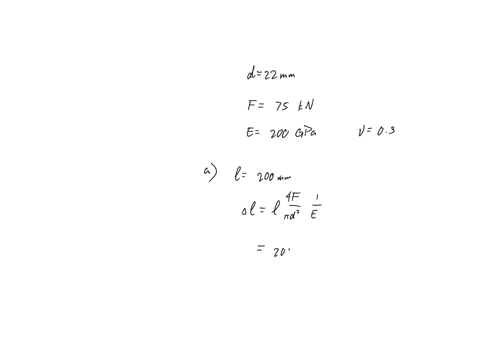 d=22mm
F= 75 kN
E= 200 GPa ν=0.3
a) l= 200mm
Δl = l 4F/πd² 1/E
= 20.